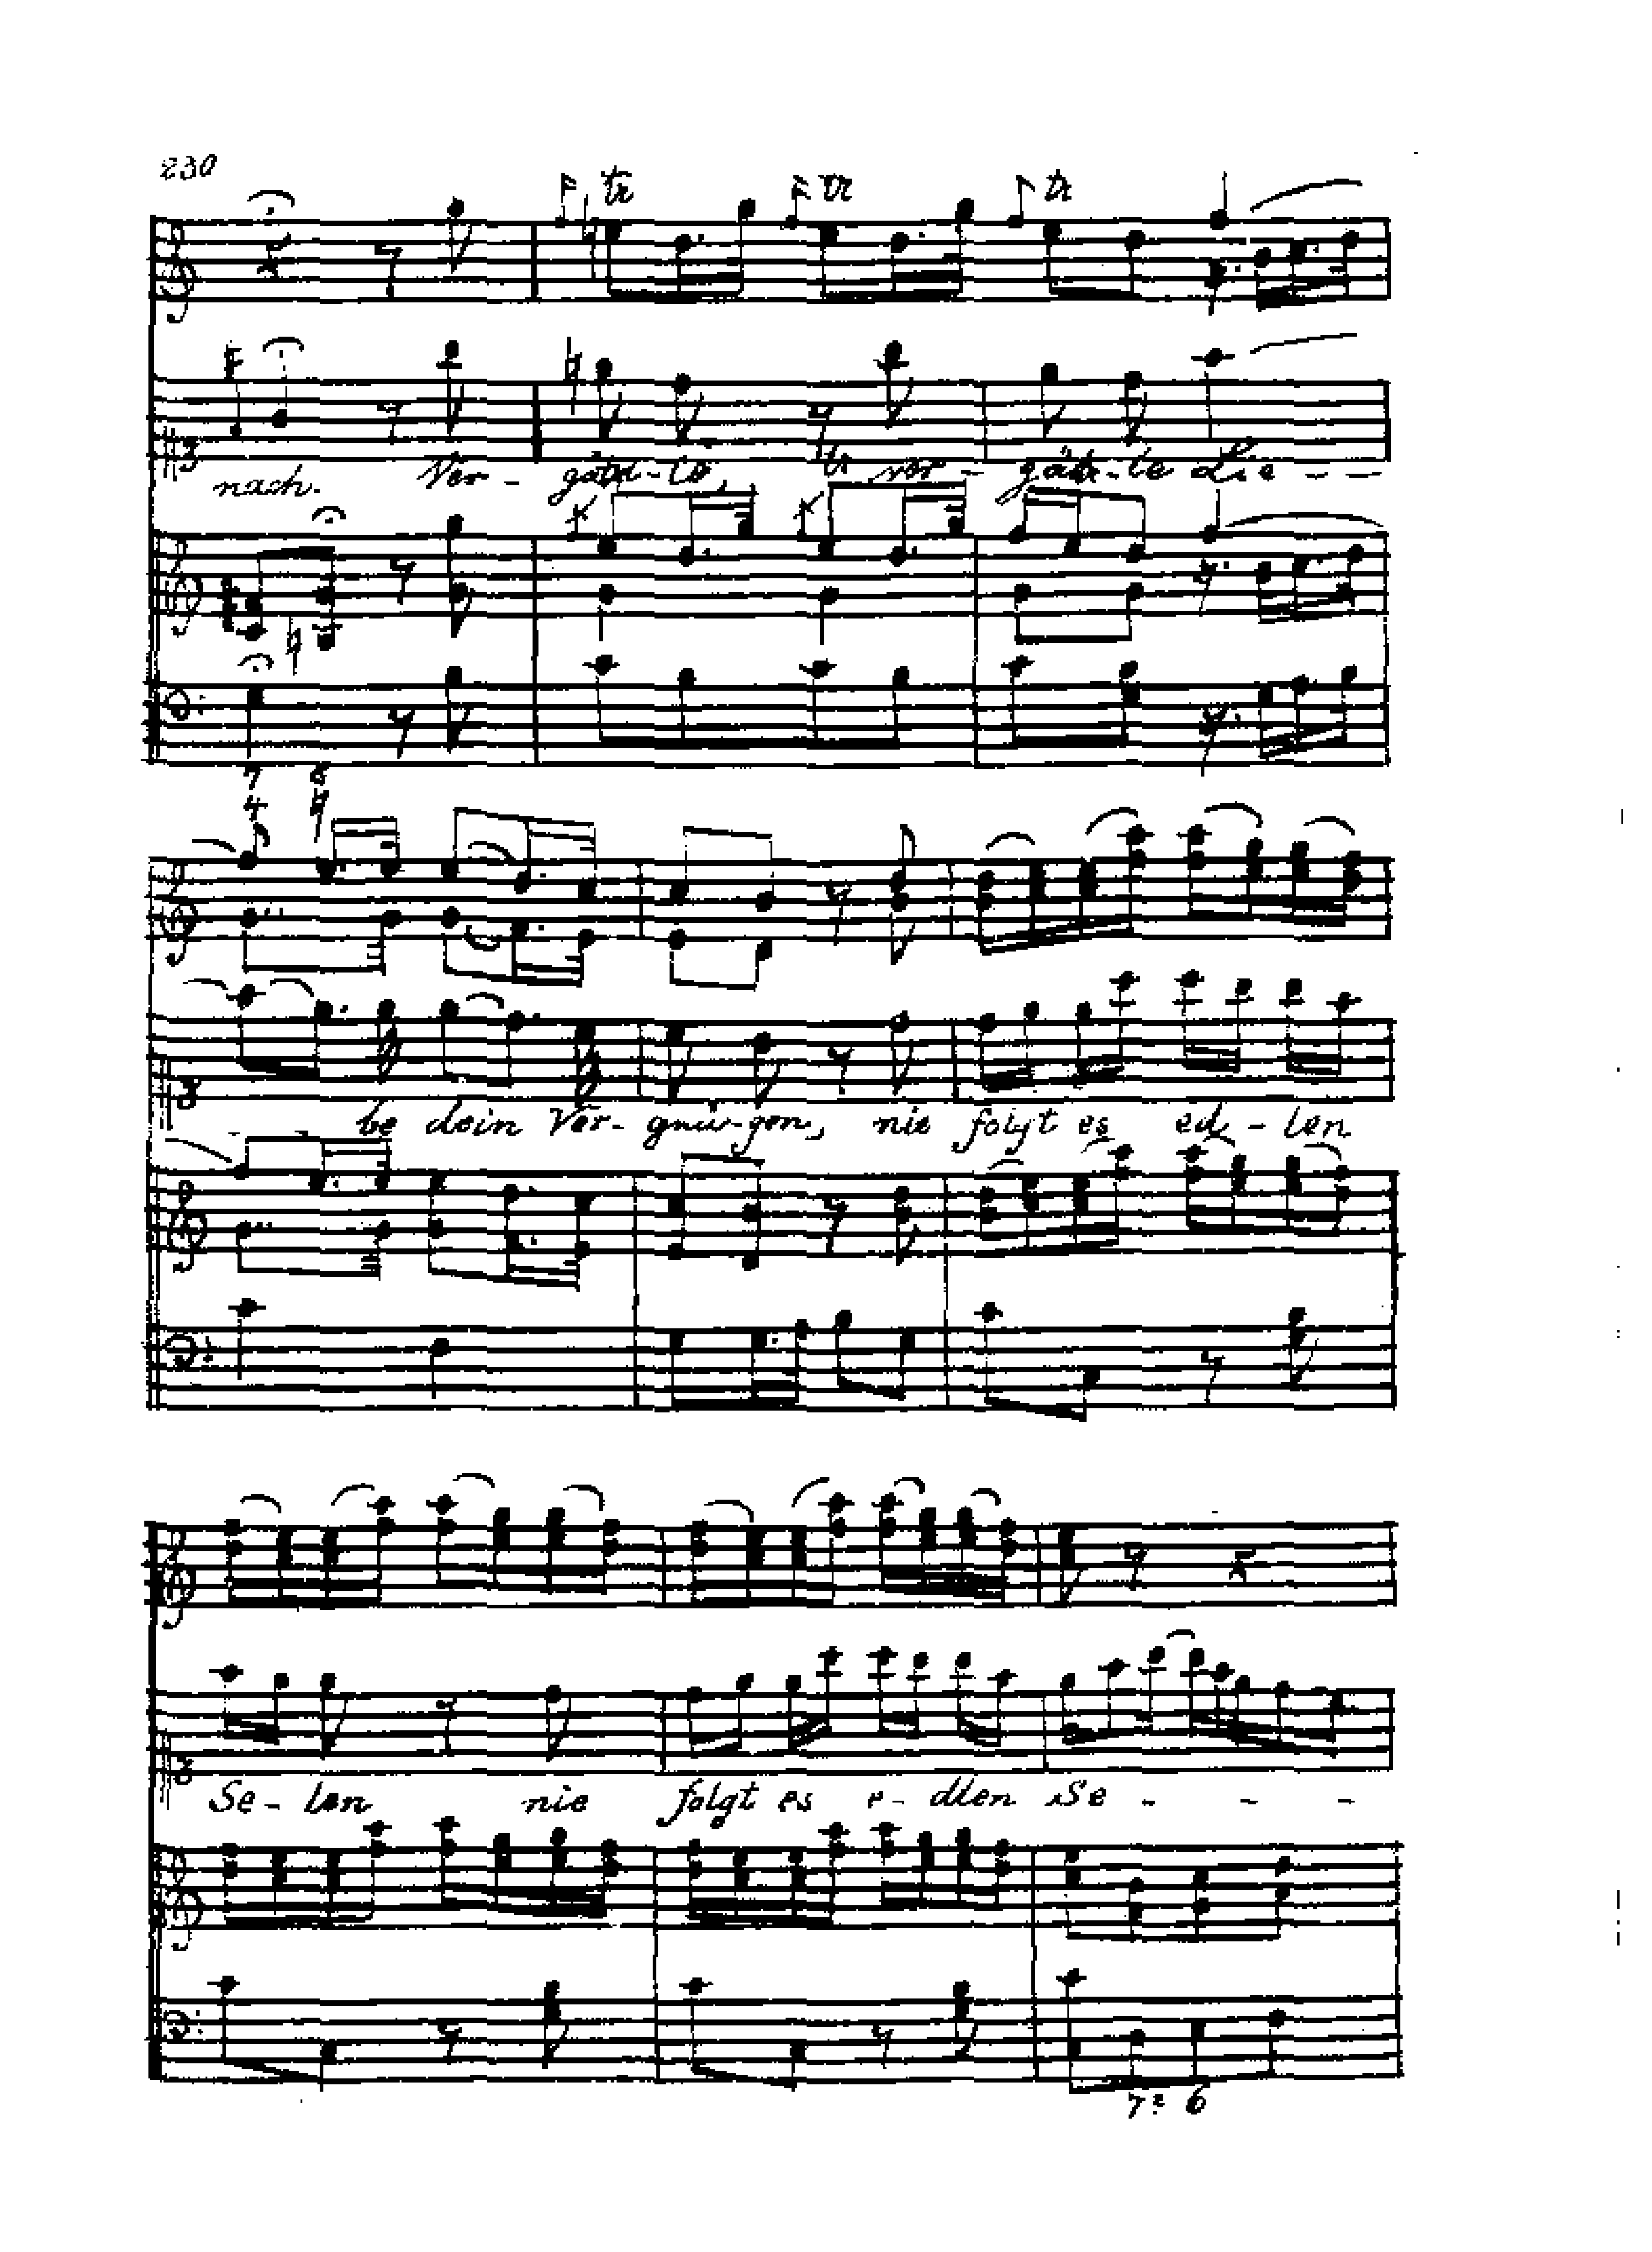 230
tr tr tr
nach. Ver - göt - te, ver - göt - te Lie - - -
7 6
4
be dein Ver - gnü - gen, nie folgt es ed - len
Se - len nie folgt es e - dlen Se - - -
7 6